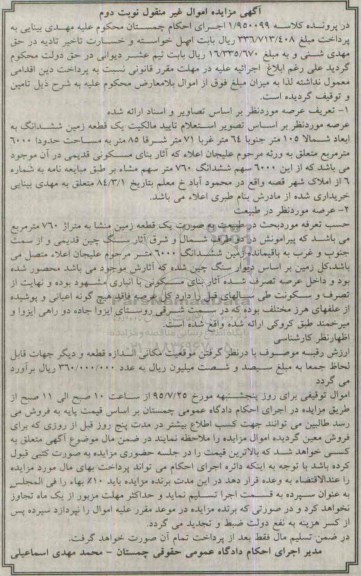 آگهی مزایده اموال غیر منقول نوبت دوم
در پرونده کلاسه ۱/۹۵۰۰۹۹ اجرای احکام چمستان محکوم علیه مهدی بینایی به
پرداخت مبلغ ۳۳۶/۷۱۳/۴۰۸ ریال بابت اصل خواسته و خسارت تاخیر تادیه در حق
مهدی شنی و به مبلغ ۱۶/۳۳۵/۶۷۰ ریال بابت نیم عشر دیوانی در حق دولت محکوم
گردید علی رغم ابلاغ اجرائیه علیه در مهلت مقرر قانونی نسبت به پرداخت دین اقدامی
معمول نداشته لذا به میزان مبلغ فوق از اموال بلامعارض محکوم علیه به شرح ذیل تامین
و توقیف گردیده است.
۱- تعریف عرصه موردنظر بر اساس تصاویر و اسناد ارائه شده
عرصه موردنظر بر اساس تصویر استعلام تایید مالکیت یک قطعه زمین ششدانگ به
ابعاد شمالا ۱۰۵ متر جنوبا ۶۴ متر غربا ۷۱ متر شرقا ۸۵ متر به مساحت حدودا ۶۰۰۰
مترمربع متعلق به ورثه مرحوم علیجان اعلاء که آثار بنای مسکونی قدیمی در آن موجود
می باشد که از این ۶۰۰۰ سهم ششدانگ ۷۶۰ متر سهم مشاء بر طبق مبایعه نامه به شماره
۶ از املاک شهر قصه واقع در محمودآباد خ معلم بتاریخ ۸۴/۳/۱ متعلق به مهدی بینایی
خریداری شده از مادرش بنام طبری اعلاء می باشد.
۲- عرصه موردنظر در طبیعت
حسب تعرفه موردبحث در طبیعت به صورت یک قطعه زمین مشا به متراژ ۷۶۰ مترمربع
می باشد که پیرامونش در دو طرف شمال و شرق آثار سنگ چین قدیمی و از سمت
جنوب و غرب به باقیمانده زمین ششدانگ ۶۰۰۰ متر مرحوم علیجان اعلاء متصل می
باشد، کل زمین بر اساس دیوار سنگ چین شده که آثارش موجود می باشد محصور شده
بود و داخل عرصه تصرف شده آثار بنای مسکونی با انباری مشهود بوده و نهایت از
تصرف و سکونت طی سالهای قبل را دارد کل عرصه فاقد هیچ گونه اعیانی و پوشیده
از علفهای هرز مختلف بوده که در سمت شرقی روستای ایزوا جاده دو راهی ایزوا و
میرخمند طبق کروکی ارائه شده واقع شده است.
اظهارنظر کارشناسی
ارزش رقبه موصوف با درنظر گرفتن موقعیت مکانی اندازه قطعه و دیگر جهات قابل
لحاظ جمعا به مبلغ سیصد و شصت میلیون ریال به عدد ۳۶۰/۰۰۰/۰۰۰ ریال برآورد
می گردد
اموال توقیفی برای روز پنجشنبه مورخ ۹۵/۷/۲۵ از ساعت ۱۰ صبح الی ۱۱ صبح از
طریق مزایده در اجرای احکام دادگاه عمومی چمستان بر اساس قیمت پایه به فروش می
رسد طالبین می توانند جهت کسب اطلاع بیشتر در مدت پنج روز قبل از روزی که برای
فروش معین گردیده اموال مزایده را ملاحظه نمایند در ضمن مال موضوع آگهی متعلق به
کسی خواهد شد که بالاترین قیمت را در جلسه حضوری مزایده به صورت کتبی قبول
کرده باشد با توجه به اینکه دائره اجرای احکام می تواند پرداخت بهای مال مورد مزایده
را عندالاقتضاء به وعده قرار دهد در این مدت برنده مزایده باید ۱۰٪ بهاء را فی المجلس
به عنوان سپرده به قسمت اجرا تسلیم نماید و حداکثر مهلت مزبور از یک ماه تجاوز
نخواهد کرد و در صورتی که برنده مزایده در موعد مقرر علیه اموال را نپردازد سپرده پس
از کسر هزینه به نفع دولت ضبط و تجدید می گردد.
در ضمن تسلیم مال فقط بعد از پرداخت تمام آن صورت خواهد گرفت.
مدیر اجرای احکام دادگاه عمومی حقوقی چمستان - محمد مهدی اسماعیلی